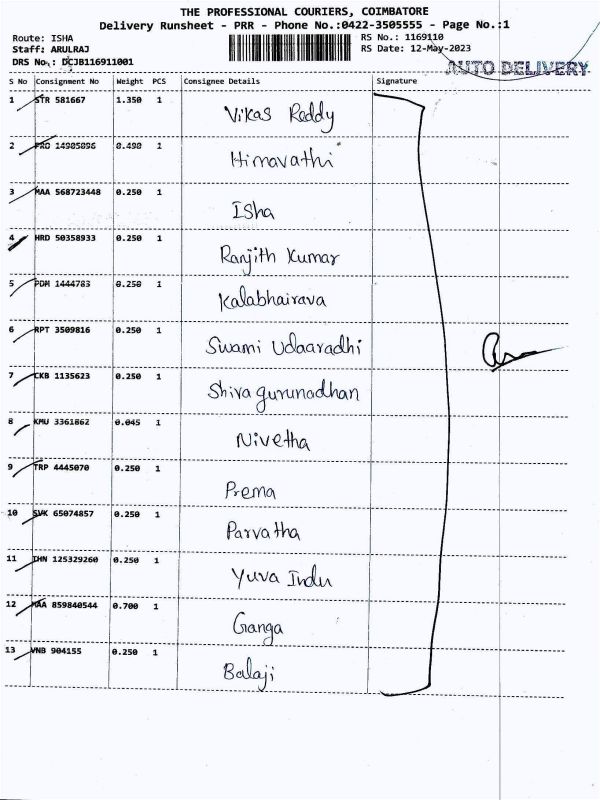 THE PROFESSIONAL COURIERS, COIMBATORE
Delivery Runsheet - PRR - Phone No.:0422-3505555 - Page No.:1
Route: ISHA
Staff: ARULRAJ
DRS No.: DCJB116911001
RS No.: 1169110
RS Date: 12-May-2023
AUTO DELIVERY
S No Consignment No Weight PCS Consignee Details Signature
1 STR 581667 1.350 1 Vikas Reddy
2 PRO 14905096 0.490 1 Himavathi
3 MAA 568723448 0.250 1 Isha
4 HRD 50358933 0.250 1 Ranjith Kumar
5 PDM 1444783 0.250 1 Kalabhairava
6 RPT 3509816 0.250 1 Swami Udaaradhi
7 CKB 1135623 0.250 1 Shiva gurunadhan
8 KMU 3361862 0.045 1 Nivetha
9 TRP 4445070 0.250 1 Prema
10 SVK 65074857 0.250 1 Parvatha
11 IHN 125329260 0.250 1 Yuva Indu
12 MAA 859840544 0.700 1 Ganga
13 VNB 904155 0.250 1 Balaji